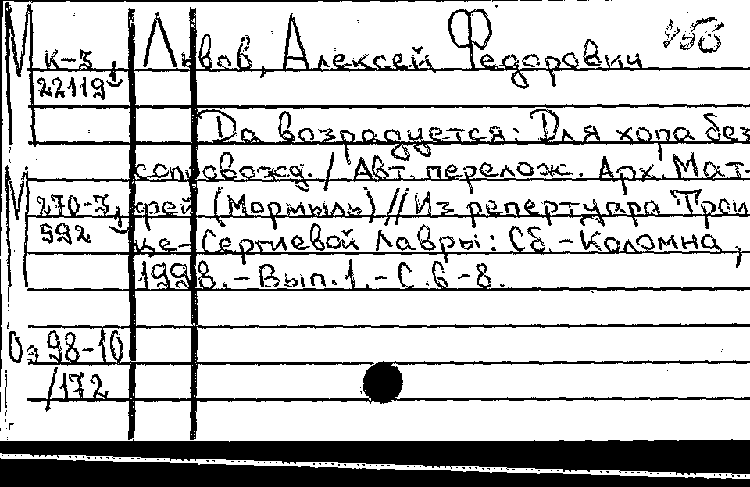 М К-3 Львов, Алексей Федорович
22119
Да возрадуется: Для хора без
сопровожд. / Авт. перелож. Арх. Мат-
М 270-3 фей (Мормыль) // Из репертуара Трои
592 це-Сергиевой Лавры: Сб.-Коломна,
1998.-Вып.1.-С.6-8.
Оэ 98-10
/172